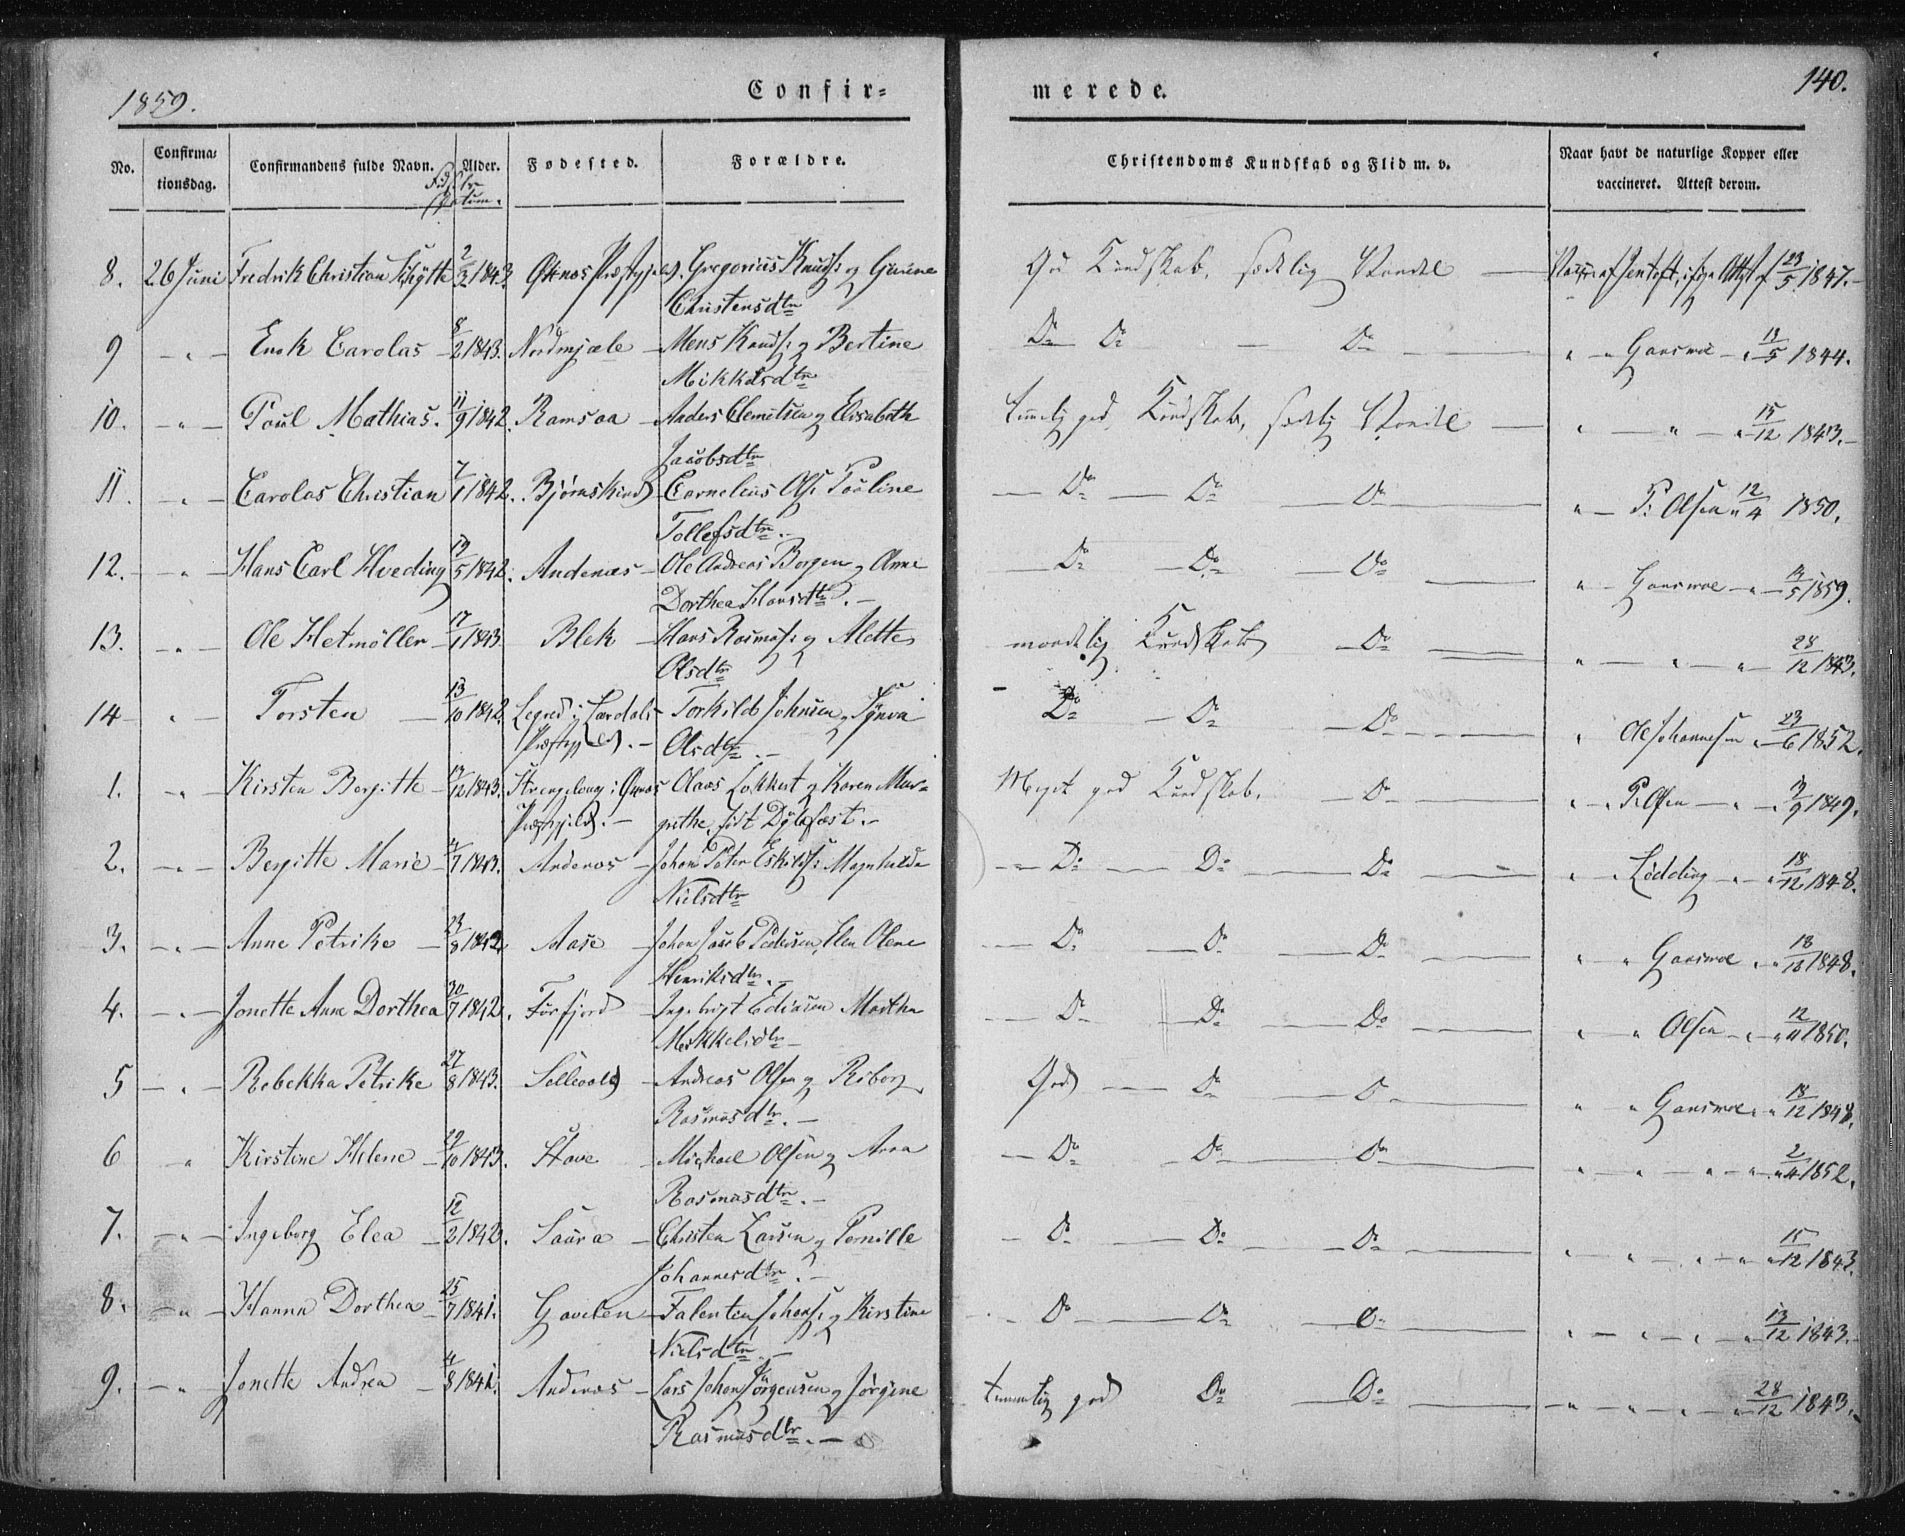 1859.
Confir-
merede.
140.
No.
Confirma-
tionsdag.
Confirmandens fulde Navn.
Alder.
Fødested.
Forældre.
Christendoms Kundskab og Flid m. v.
Naar havt de naturlige Kopper eller
vaccineret. Attest derom.
8. 26 Juni Fredrik Christian 2/3 1843. Gregorius Knuds: og
Christensdtr
God Kundskab, sædelig Vandel 23/5 1847.
9 - " - Enok Carolas - 8/2 1843. Nordmjæle - Mons Knuds: og Bertine
Mikkelsdtr
Do Do - Do " - Gaarsmoe - " 13/5 1844.
10. - " - Poul Mathias. 11/9 1842. Ramsaa - Anders Clemetsen og Elisabeth
Jacobsdtr
temmelig god Kundskab, sædelig Vandel " - " - " 15/12 1843.
11. - " - Carolas Christian 7/1 1842. Bjørnskind - Cornelius Ols: Pauline
Tollefsdtr.
Do - Do Do " - P: Olsen " 12/4 1850.
12. - " - Hans Carl Hveding 19/5 1842. Andenæs - Ole Andreas Borgen og Anne
Dorthea Hansdtr.
Do - Do - Do " - Gaarsmoe - " - 14/5 1859.
13. - " - Ole Hetmøller - 17/1 1843 Blek - Hans Rasmus: og Alette
Olsdtr
maadelig Kundskab - Do " - " - " 28/12 1843.
14 - " - Torsten - 13/10 1842. i Lærdals - Torkild Johnsen og Synva
Præstegjeld. - Olsdtr.
Do - Do - Do " Ole Johannesen " 23/6 1852.
1. - " - Kirsten Bergitte 1843. i Øxnæs Olaus Lokkert og Karen Mar-
Præstegjeld. - grethe, født Dybfæst.
Meget god Kundskab. - Do " - P. Olsen - " - 1849.
2. - " - Bergitte Marie - 1843. Andenæs - Johan Peter Eskilds: Magnhilda
Nielsdtr
Do - Do - Do " - Lødding - " 18/12 1848.
3. - " - Anne Petrike - 23/8 1842 Aase - Johan Jacob Pedersen, Elen Olene
Henriksdtr.
Do - Do - Do " " Gaarsmoe " 1848.
4. - " - Jonette Anne Dorthea 30/7 1842. Forfjord - Ingebrigt Edissen Martha
Mikkelsdtr
Do - Do - Do " " Olsen 12/11 1850.
5 - " - Rebekka Petrike 27/8 1843. - Andreas Olsen og Riborg
Rasmusdtr.
God - Do - Do " " Gaarsmoe " 18/12 1848.
6 " Kirstine Helene - 1843. Stave - Michael Olsen og Anna
Rasmusdtr.
Do - Do - Do " - " - " 2/4 1852.
7. - " - Ingeborg Elea - 12/2 1842. Saura - Christen Larsen og Pernille
Johannesdtr.
Do - Do - Do " - " - " 15/12 1843.
8. - " - Hanna Dorthea - 25/7 1841. Gavelen - Falentin Johans: og Kirstine
Nielsdtr.
Do - Do - Do " - " - " 13/12 1843.
9. - " - Jonette Andrea - 4/8 1841. Andenæs - Lars Johan Jørgensen og Jørgine
Rasmusdtr.
temmelig god Do - Do " - " - " 28/12 1843.